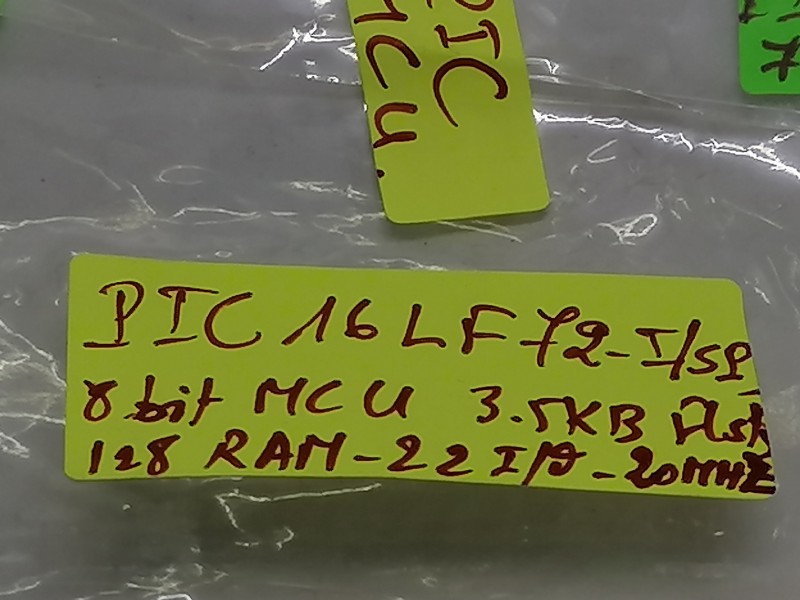 PIC
MCU.
7
PIC 16LF72-I/SP
8 bit MCU 3.5KB Flsh
128 RAM-22 I/O-20MHZ